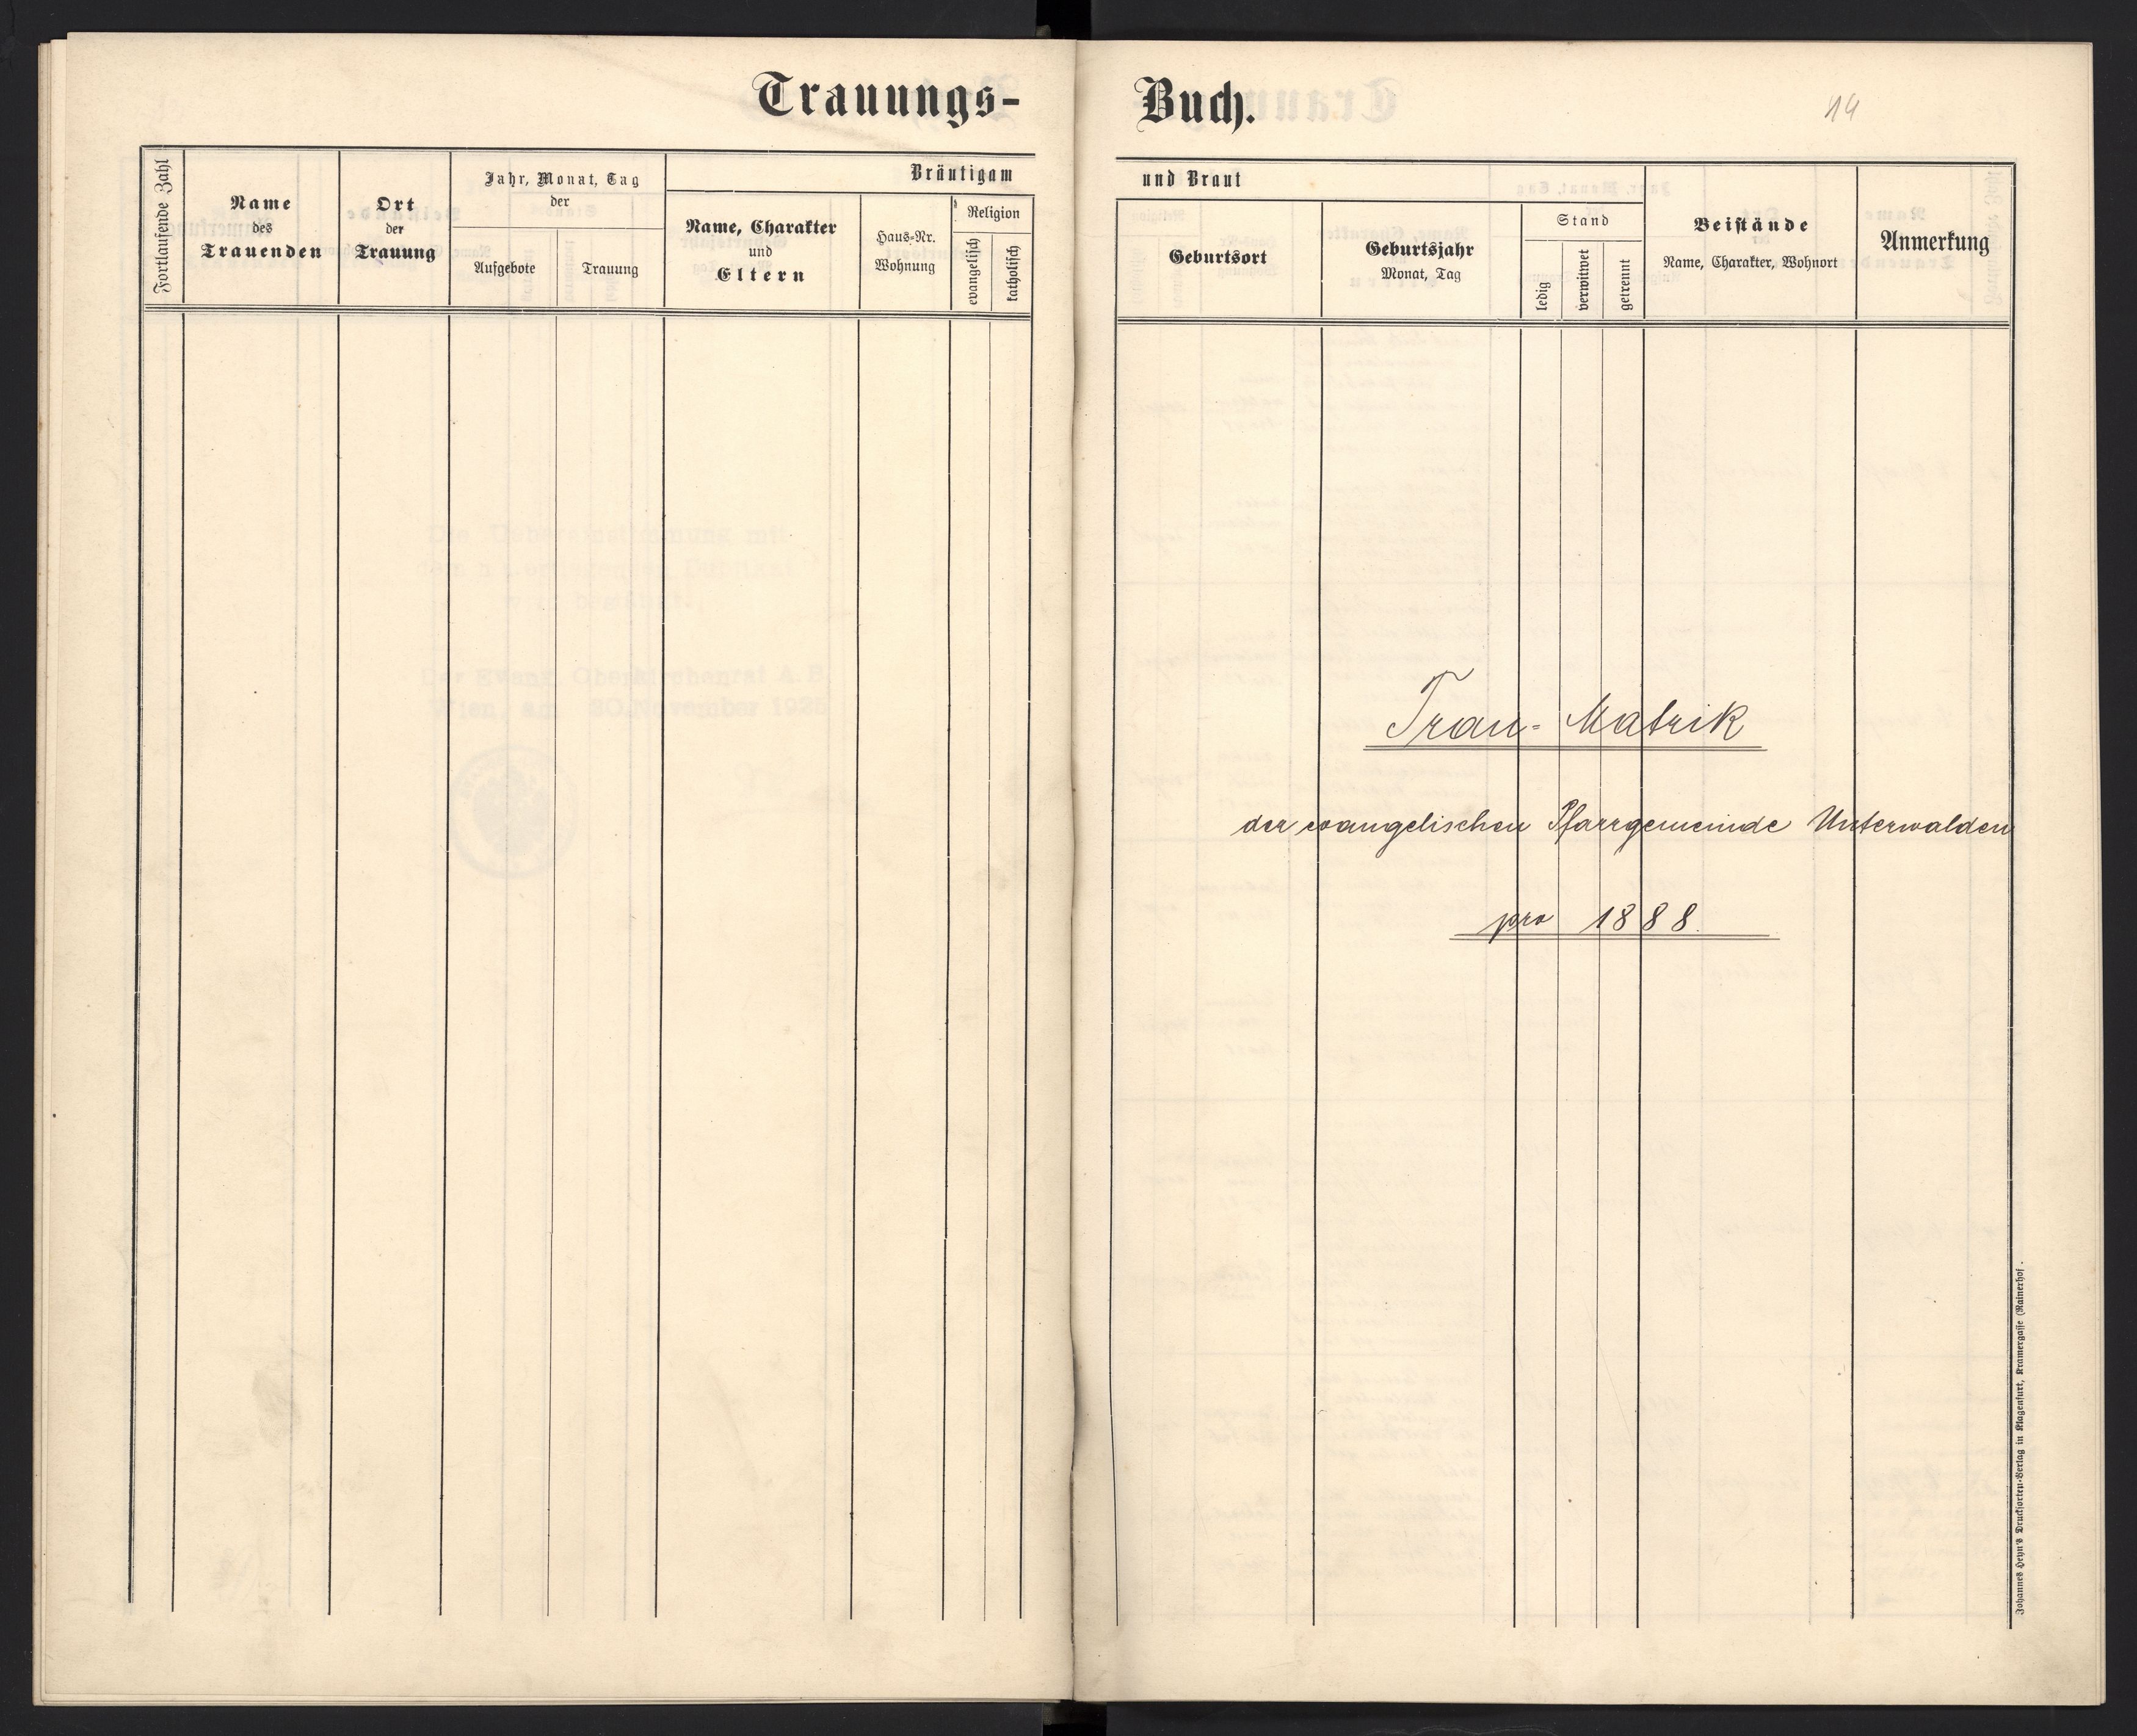 Trauungs-
Buch.
Fortlaufende Zahl
Name
des
Trauenden
Ort
der
Trauung
Jahr, Monat, Tag
der
Aufgebote
Trauung
Bräutigam
Name, Charakter
und
Eltern
Haus-Nr.
Wohnung
Religion
evangelisch
katholisch
und Braut
Geburtsort
Geburtsjahr
Monat, Tag
Stand
ledig
verwitwet
getrennt
Beistände
Name, Charakter, Wohnort
Anmerkung
Trau-Matrik
der evangelischen Pfarrgemeinde Unterwalden
pro 1888.
Johannes Heyn's Drucksorten-Verlag in Klagenfurt, Kramergasse (Rainerhof.
Der Evang. Oberkirchenrat A. B.
Wien, am 20. November 1925